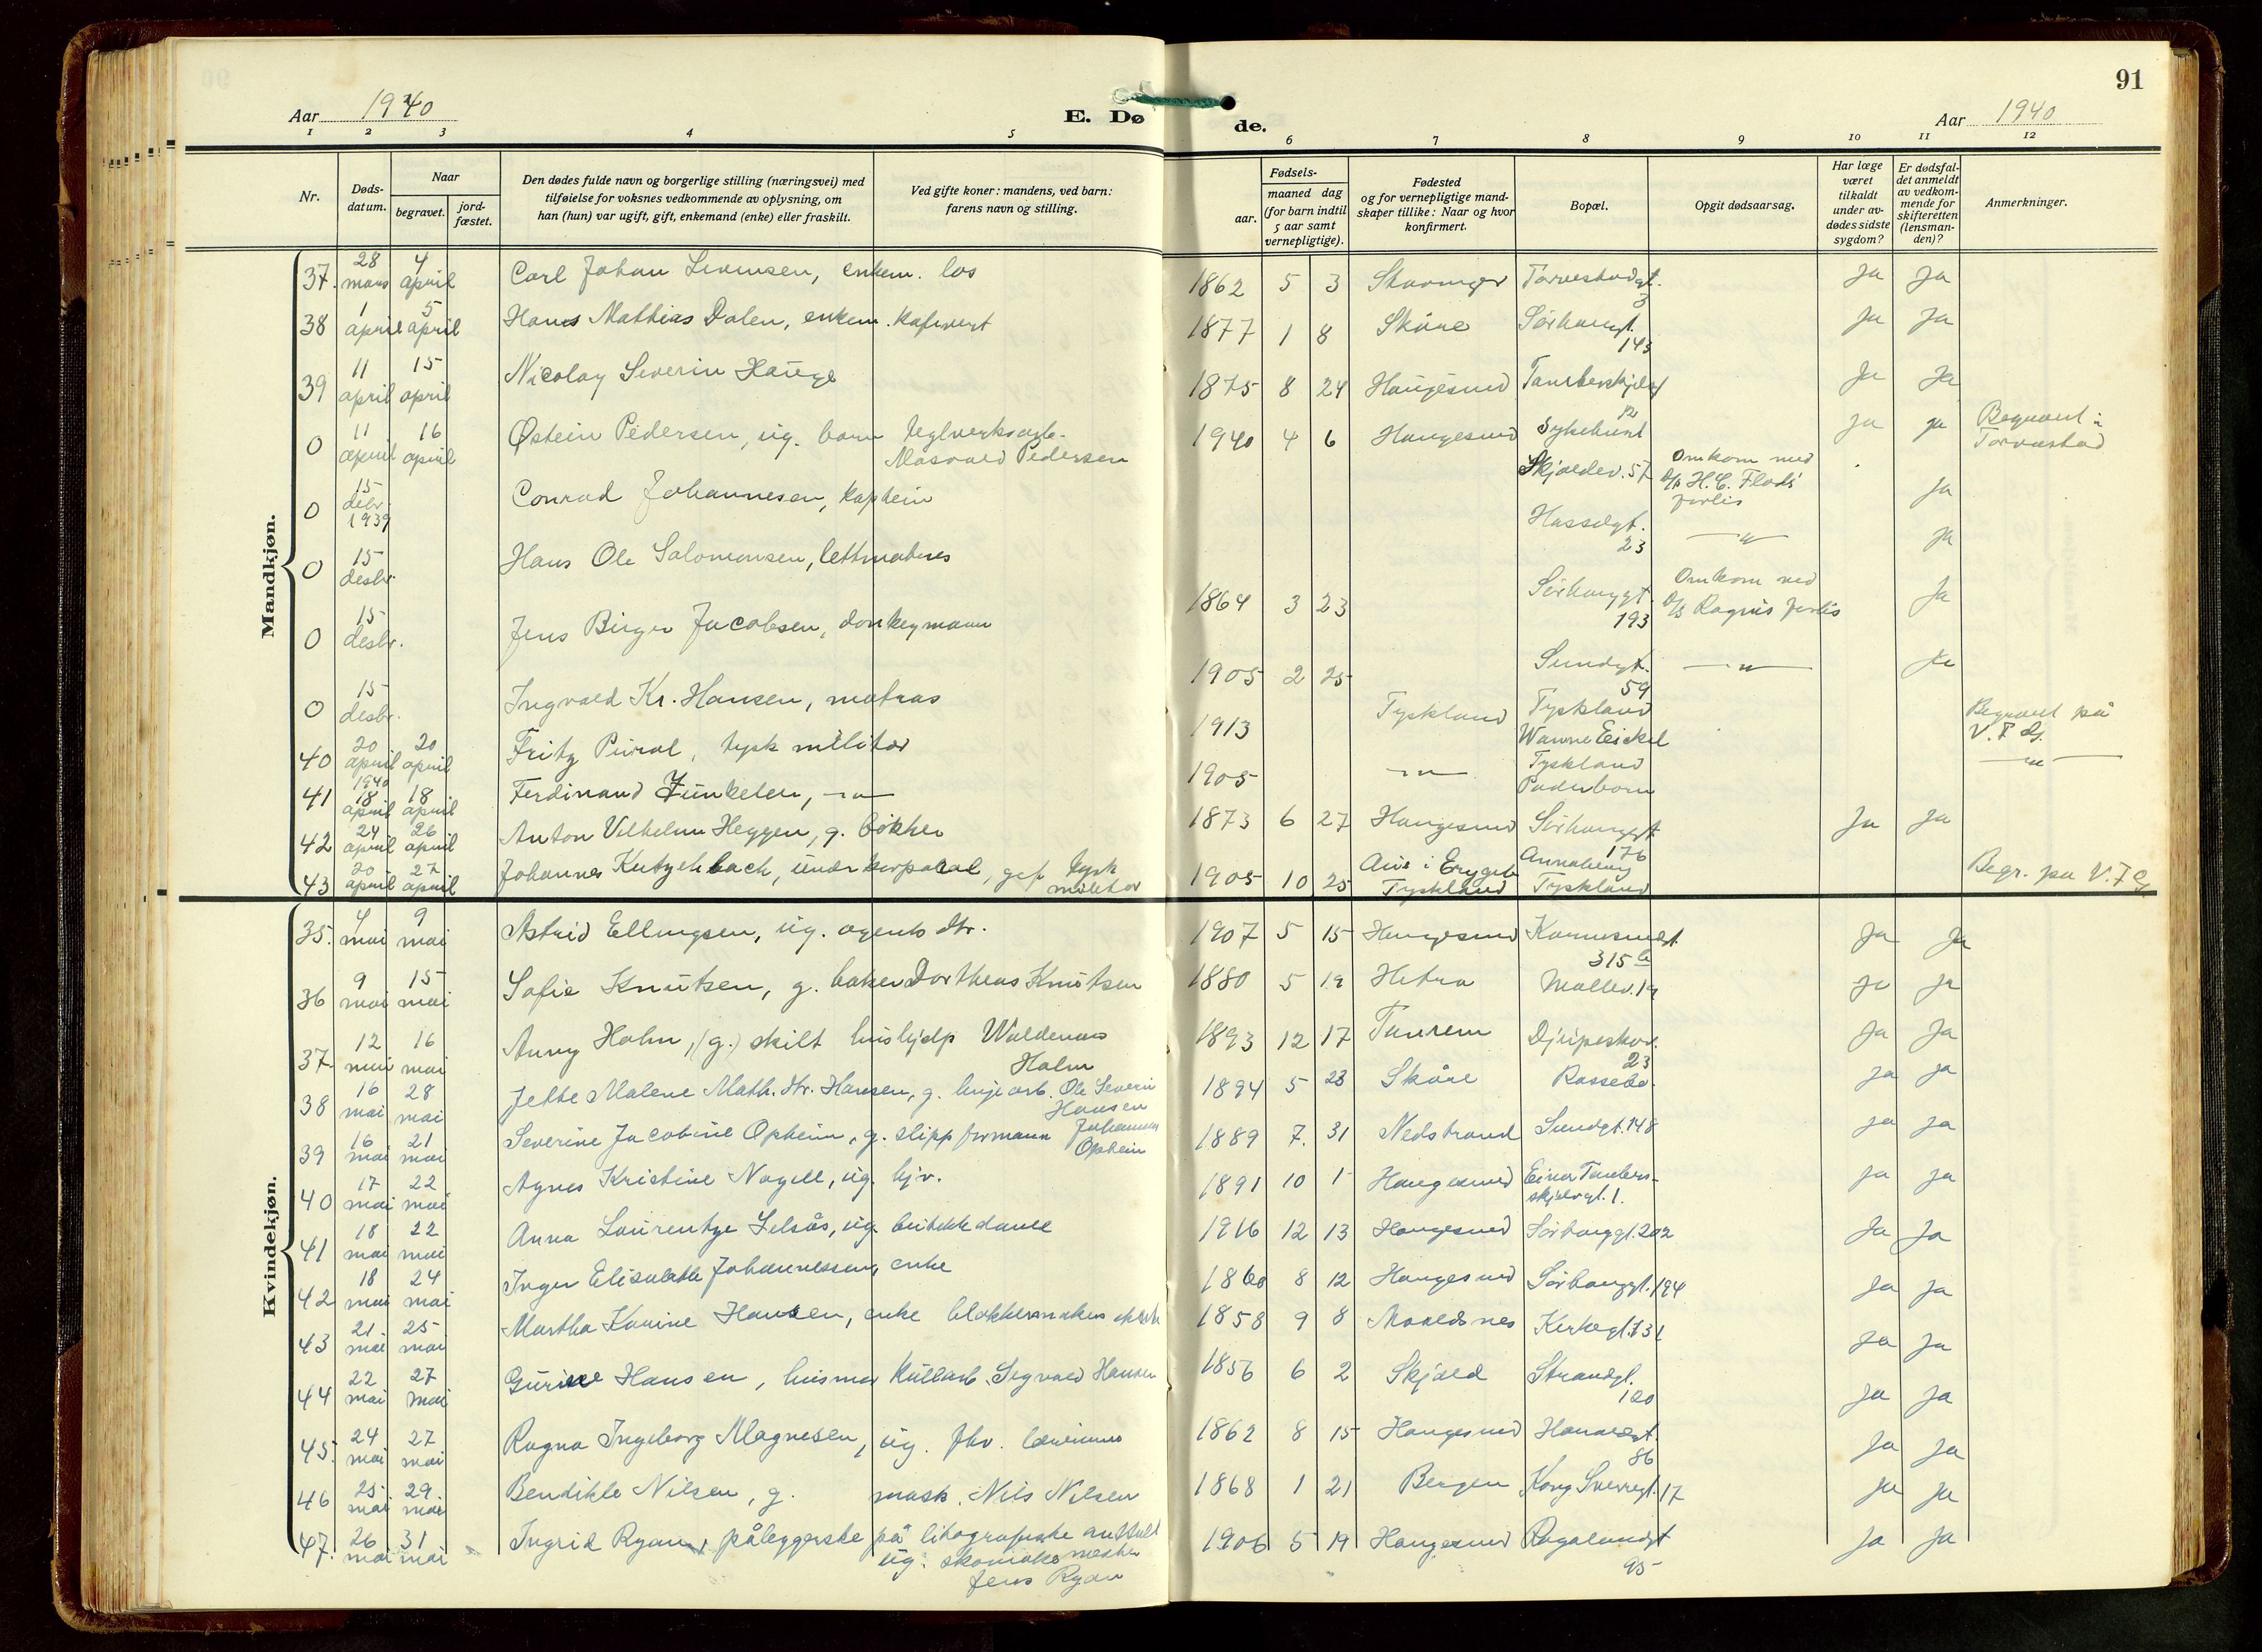 91
Aar 1940
E. Dø
de.
Aar 1940
1 2 3 4 5 6 7 8 9 10 11 12
Nr.
Døds-
datum.
Naar
begravet.
jord-
fæstet.
Den dødes fulde navn og borgerlige stilling (næringsvei) med
tilføielse for voksnes vedkommende av oplysning, om
han (hun) var ugift, gift, enkemand (enke) eller fraskilt.
Ved gifte koner: mandens, ved barn:
farens navn og stilling.
Fødsels-
aar.
maaned dag
(for barn indtil
5 aar samt
vernepligtige).
Fødested
og for vernepligtige mand-
skaper tillike: Naar og hvor
konfirmert.
Bopæl.
Opgit dødsaarsag.
Har læge
været
tilkaldt
under av-
dødes sidste
sygdom?
Er dødsfal-
det anmeldt
av vedkom-
mende for
skifteretten
(lensman-
den)?
Anmerkninger.
Mandkjøn.
37. 28 mars 4 april Carl Johan Sivensen, enkem. los 1862 5 3 Stavanger Torvestadgt. 3 Ja Ja
38 1 april 5 april Hans Mathias Dalen, enkem. kafevert 1877 1 8 Skåre Sørhauggt. 145 Ja Ja
39 11 april 15 april Nicolay Severin Hauge 1875 8 24 Haugesund Ja Ja
0 11 april 16 april Østein Pedersen, ug. barn teglverksarb. Masvald Pedersen 1940 4 6 Haugesund Sykehuset Ja Ja Begravet i Torvastad
0 15 debr. 1939 Conrad Johannesen, kaptein Skjoldev. 57 Omkom med D/S H.C. Flods forlis Ja
0 15 desbr. Hans Ole Salomonsen, lettmatros Hasselgt. 23 —"— Ja
0 15 desbr. Jens Birger Jacobsen, donkeymann 1864 3 23 Sørhauggt. 193 Omkom med D/S Ragnis forlis Ja
0 15 desbr. Ingvald Kr. Hansen, matros 1905 2 25 Sundgt. 59 —"— Ja
40 20 april 20 april Fritz, tysk militær 1913 Tyskland Tyskland Wanne Eickel Begravet på V. F. G.
41 1940 18 april 18 april Ferdinand Funkelen, —"— 1905 —"— Tyskland Paderborn —"—
42 24 april 26 april Anton Vilhelm Heggen, g. bøkker 1873 6 27 Haugesund Sørhauggt. 176 Ja Ja
43 20 april 27 april Johannes Kutzchbach, underkorporal, gift tysk militær 1905 10 25 Aue i Erzgeb. Tyskland Annaberg Tyskland Begr. på V. F G
Kvindekjøn.
35. 4 mai 9 mai Astrid Ellingsen, ug. agents dtr. 1907 5 15 Haugesund Karmsundgt. 315 Ja Ja
36 9 mai 15 mai Sofie Knutsen, g. baker Dortheus Knutsen 1880 5 19 Hetra Møllev. 19 Ja Ja
37. 12 mai 16 mai Anny Holm, (g.) skilt hushjelp Waldemar Holm 1893 12 17 Djupeskov. 23 Ja Ja
38 16 mai 28 mai Jette Malene Math. dtr. Hansen, g. linjearb. Ole Severin Hansen 1894 5 23 Skåre Rossebø. Ja Ja
39 16 mai 21 mai Severine Jacobine Opheim, g. slippformann Johannes Opheim 1889 7. 31 Nedstrand Sundgt. 148 Ja Ja
40 17 mai 22 mai Agnes Kristine Nagell, ug. hjv. 1891 10 1 Haugesund Einar Tamberskjelvsgt. 1. Ja Ja
41 18 mai 22 mai Anna Laurentze Selsås, ug. butikkdame 1916 12 13 Haugesund Sørhauggt. 202 Ja Ja
42 18 mai 24 mai Inger Elisabeth Johannessen, enke 1860 8 12 Haugesund Sørhauggt. 194 Ja Ja
43 21 mai 25 mai Martha Karine Hansen, enke blokkemaker 1858 9 8 Kirkegt. 131 Ja Ja
44 22 mai 27 mai Gurine Hansen, husmor kullarb. Sigvald Hansen 1856 6 2 Skjold Strandgt. 120 Ja Ja
45. 24 mai 27 mai Ragna Ingeborg Magnesen, ug. fhv. lærerinne 1862 8 15 Haugesund Haraldsgt. 86 Ja Ja
46 25 mai 29 mai Bendikte Nilsen, g. mask. Nils Nilsen 1868 1 21 Bergen Kong Sverregt. 17 Ja Ja
47. 26 mai 31 mai Ingrid Ryan, påleggerske på litografiske anstalt ug. skomakermester Jens Ryan 1906 5 19 Haugesund Rogalandsgt. 95 Ja Ja